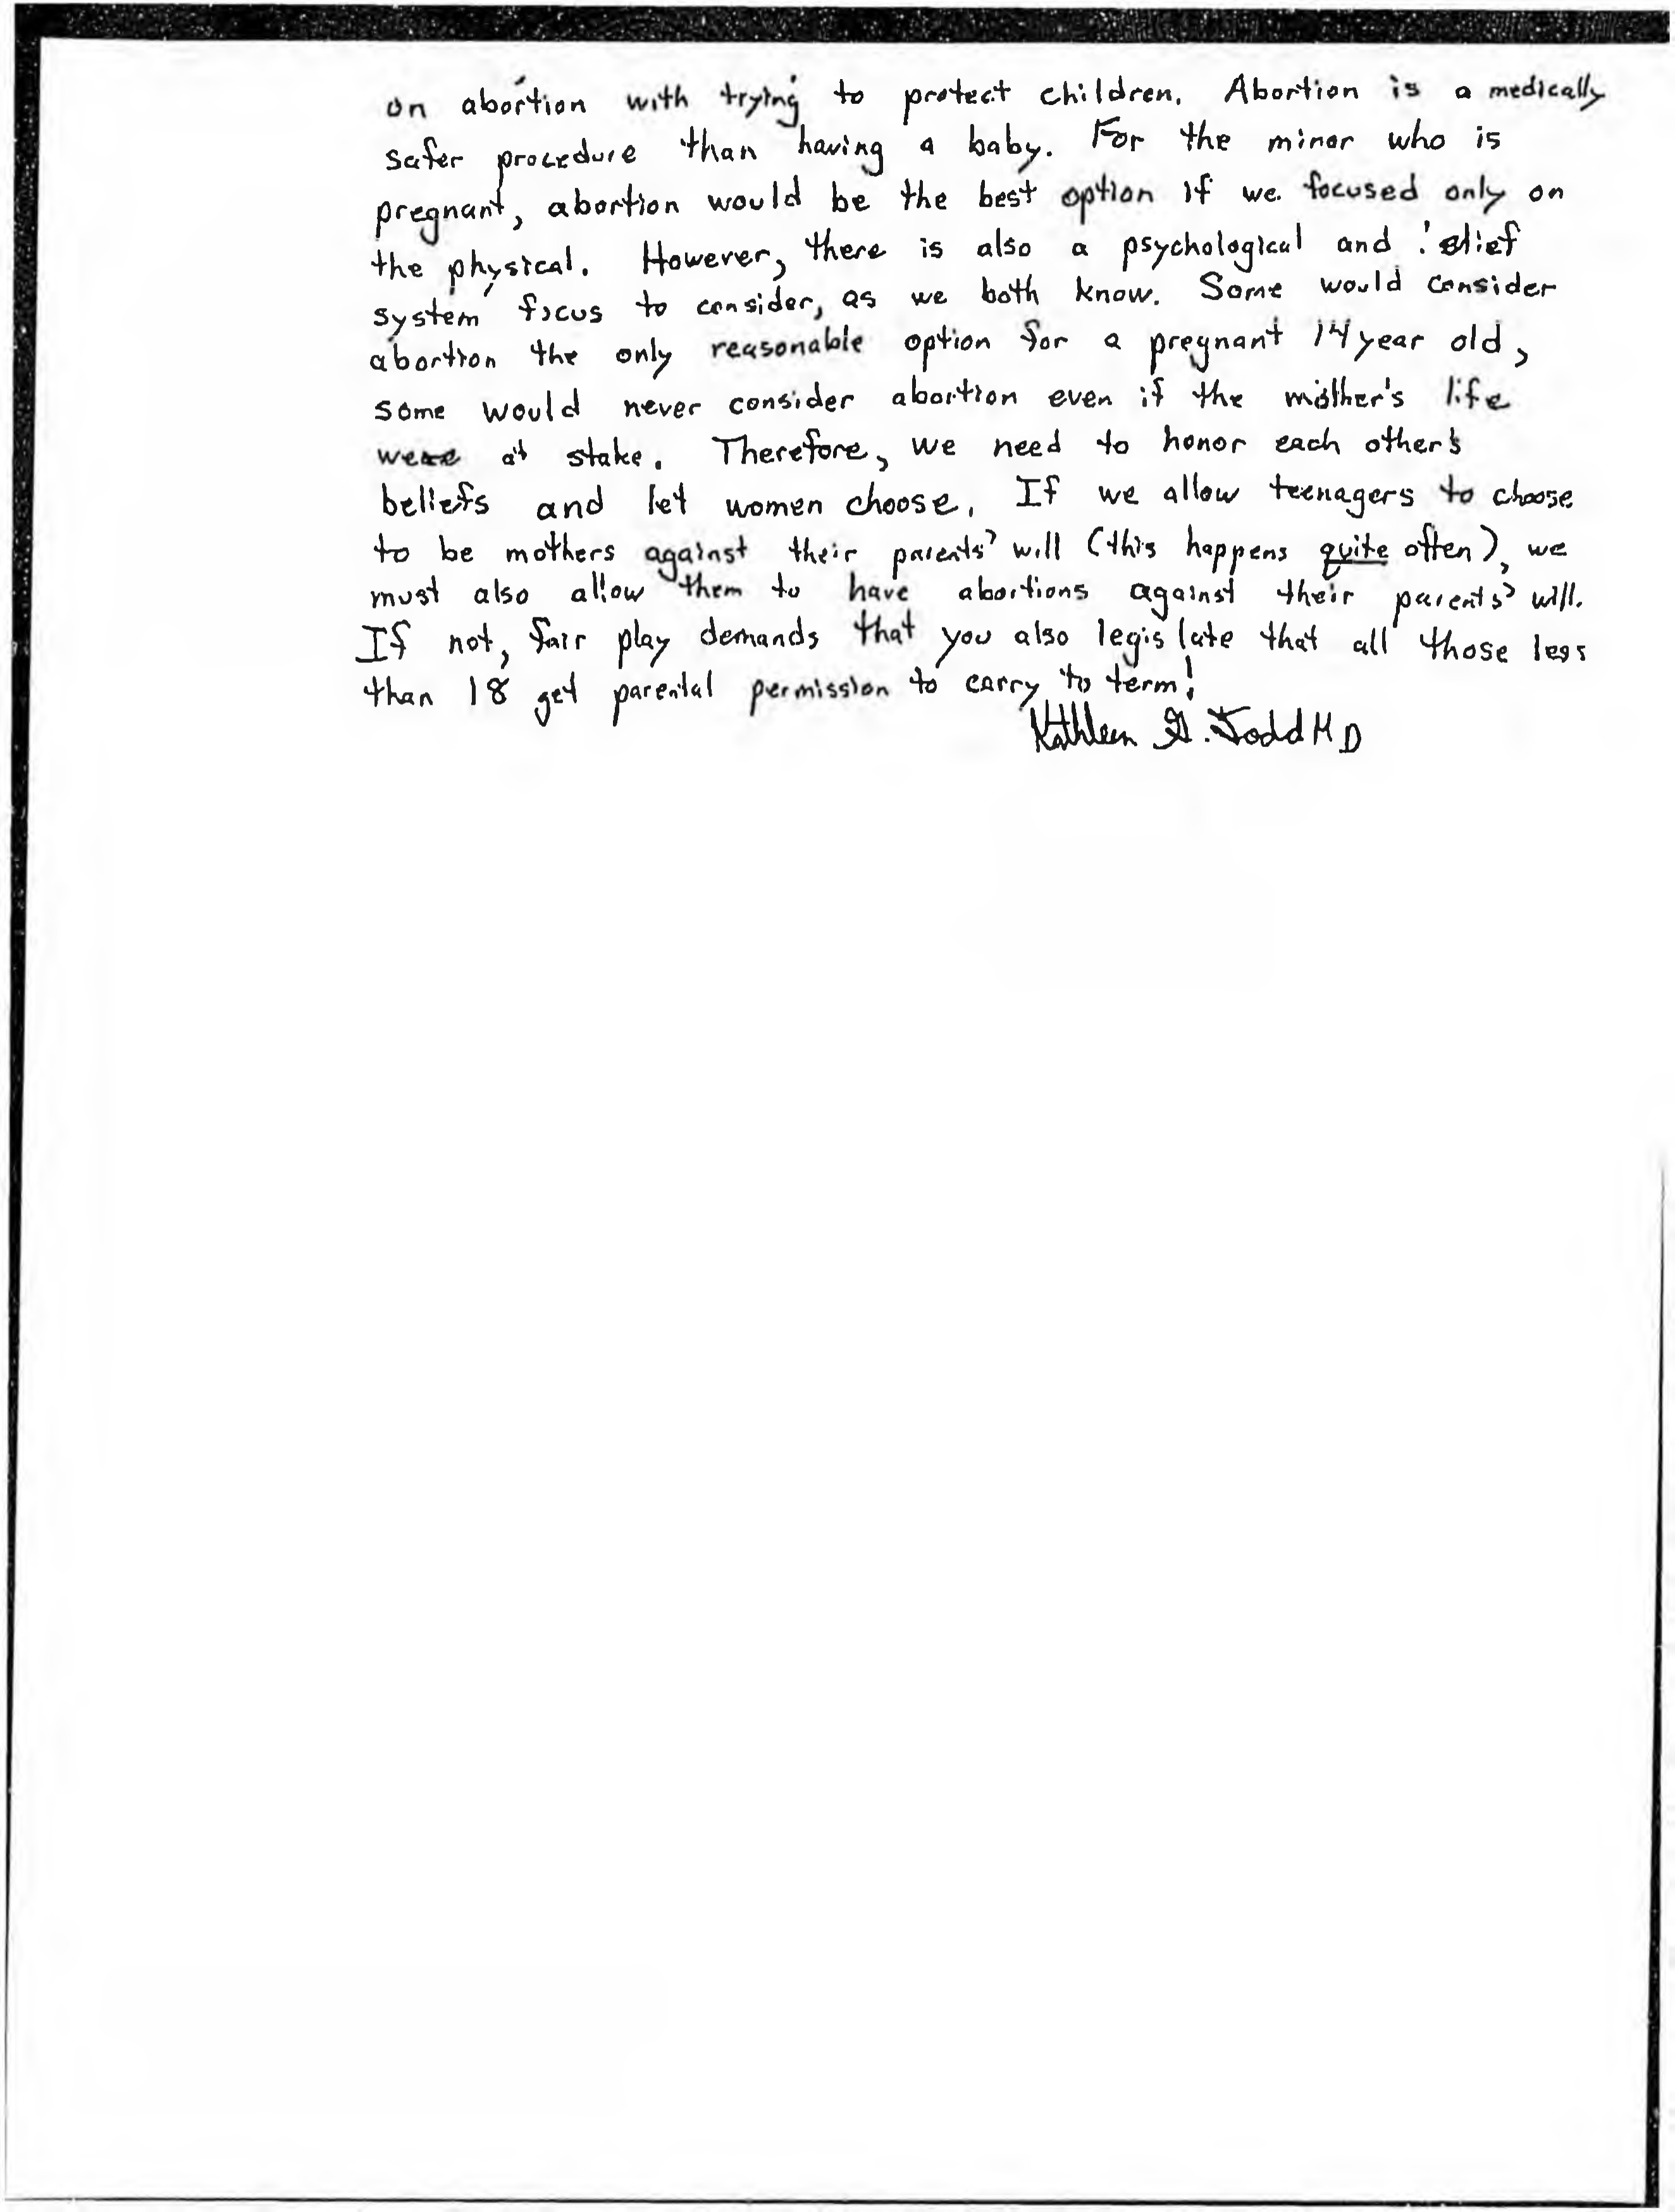 on abortion with trying to protect children. Abortion is a medically
safer procedure than having a baby. For the minor who is
pregnant, abortion would be the best option if we focused only on
the physical. However, there is also a psychological and belief
system focus to consider, as we both know. Some would consider
abortion the only reasonable option for a pregnant 14 year old,
some would never consider abortion even if the mother's life
were at stake. Therefore, we need to honor each other's
beliefs and let women choose. If we allow teenagers to choose
to be mothers against their parents' will (this happens quite often), we
must also allow them to have abortions against their parents' will.
If not, fair play demands that you also legislate that all those less
than 18 get parental permission to carry to term!
Kathleen G. Todd MD